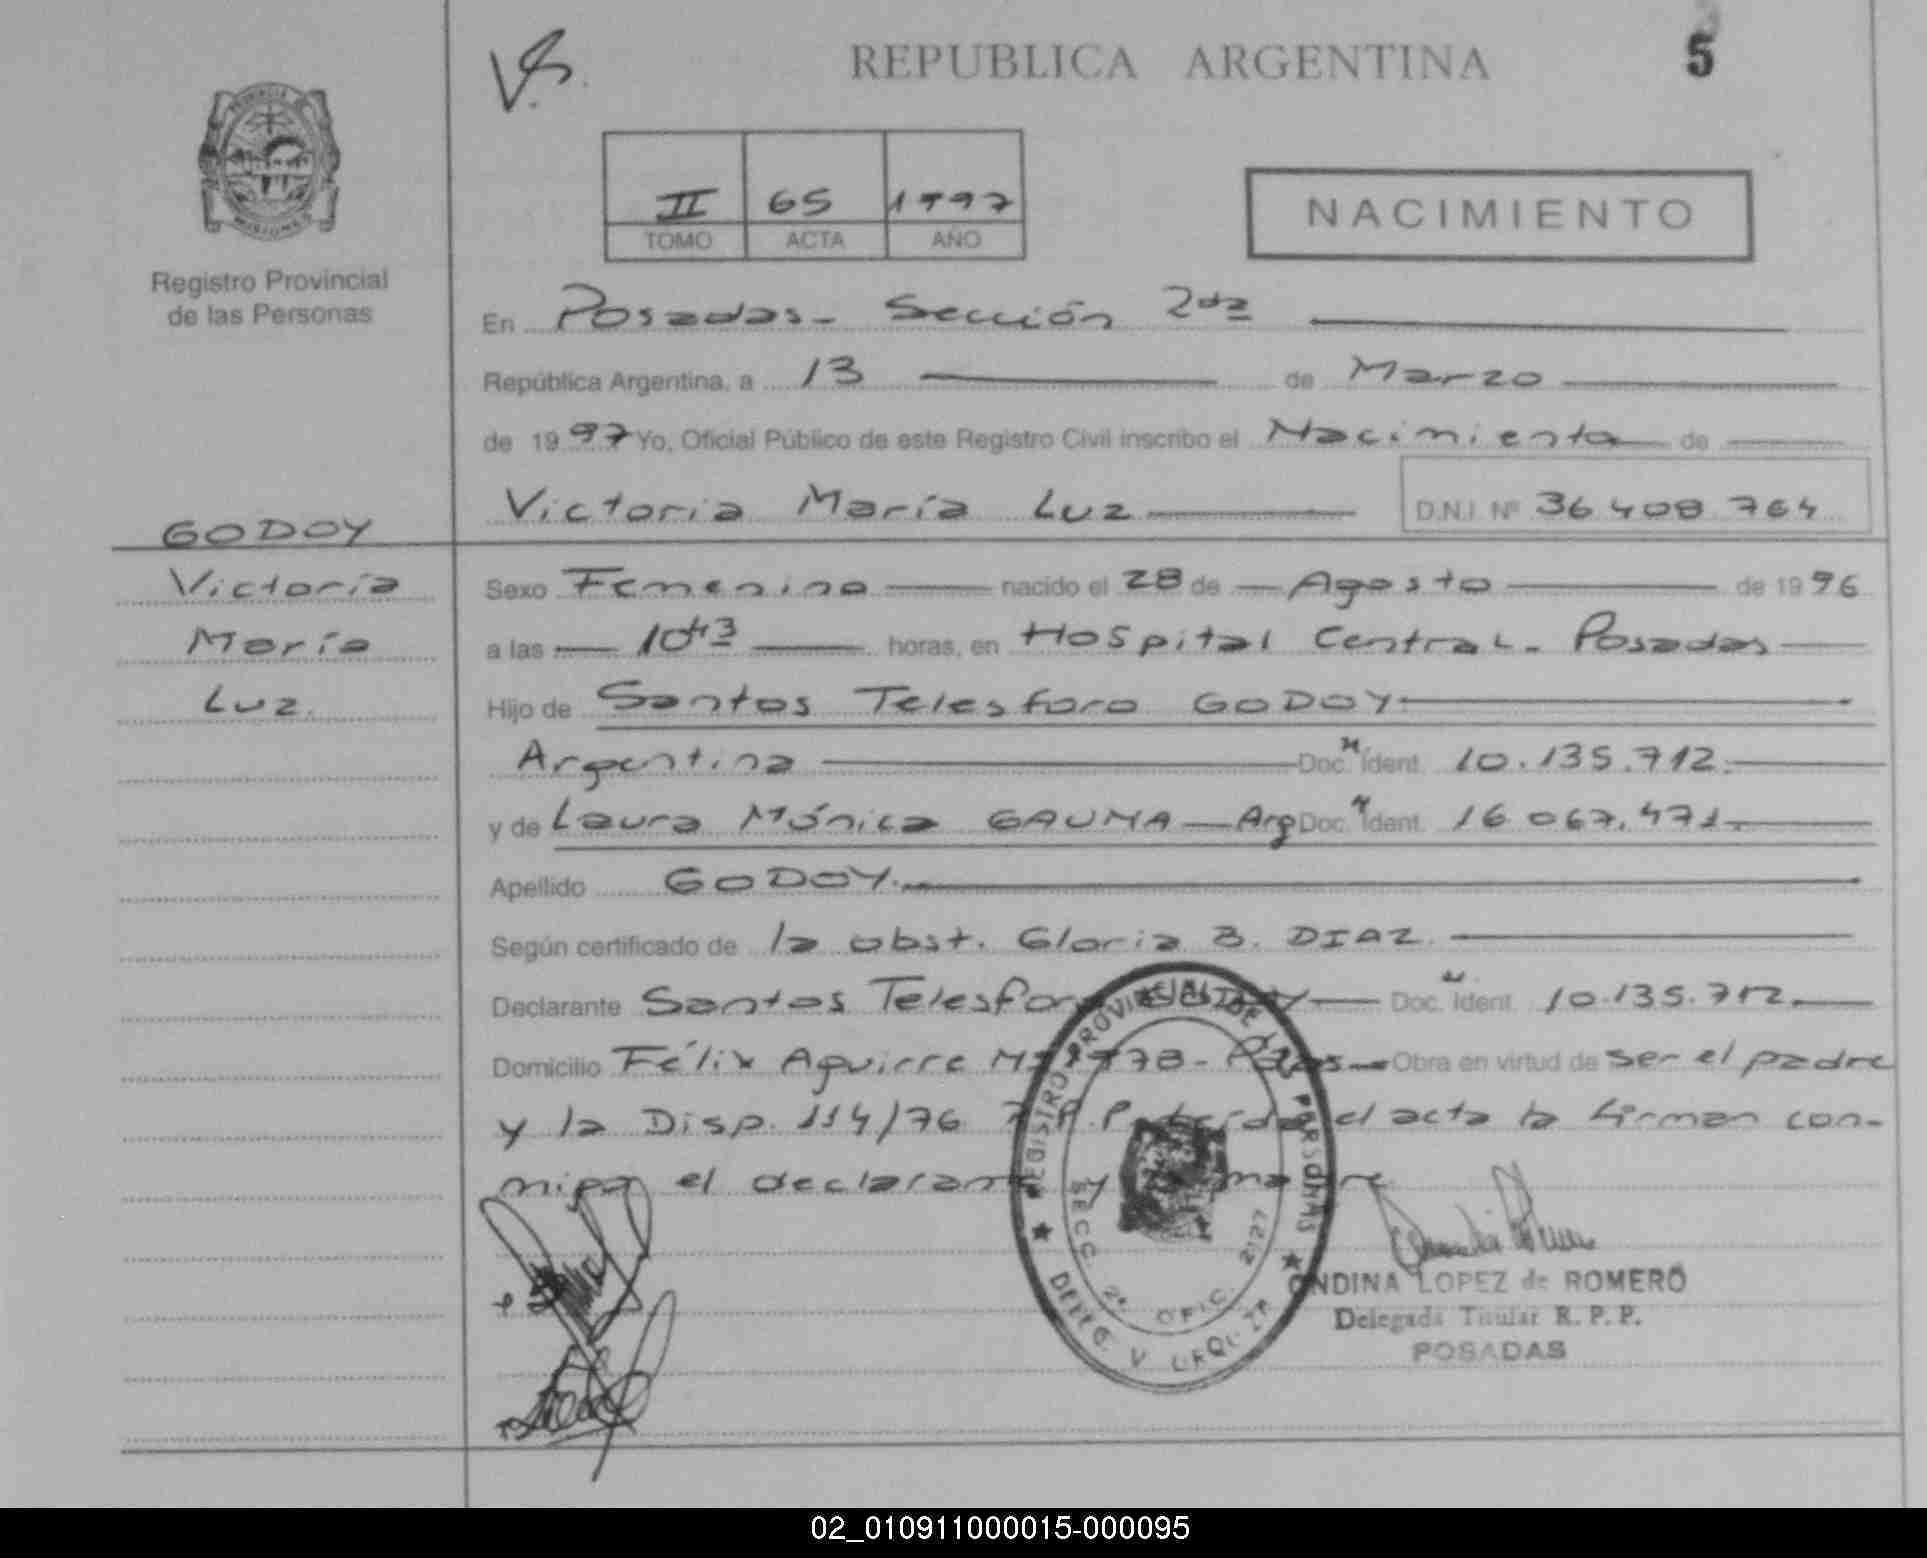 V.S.
REPUBLICA ARGENTINA
5
II 65 1997
TOMO ACTA AÑO
NACIMIENTO
Registro Provincial
de las Personas
En Posadas - Sección 2da
República Argentina, a 13 de Marzo
de 1997 Yo, Oficial Público de este Registro Civil inscribo el Nacimiento de
Victoria María Luz D.N.I. Nº 36 408 764
GODOY
Victoria
María
Luz.
Sexo Femenino nacido el 28 de Agosto de 1996
a las 10 43 horas, en Hospital Central - Posadas
Hijo de Santos Telesforo GODOY
Argentina Doc. N. Ident. 10.135.712.
y de Laura Mónica GAUMA Arg Doc. N. Ident. 16 067.471.
Apellido GODOY.
Según certificado de la obst. Gloria B. DIAZ.
Declarante Santos Telesforo GODOY Doc. N. Ident. 10.135.712.
Domicilio Félix Aguirre Nº 1978 - Pdas Obra en virtud de ser el padre
y la Disp. 114/76 R.P. Leída el acta la firman con-
migo el declarante y la madre
REGISTRO PROVINCIAL DE LAS PERSONAS
SECC. 2ª OFIC. 2127
V. URQUIZA
ONDINA LOPEZ de ROMERO
Delegada Titular R. P. P.
POSADAS
02_010911000015-000095